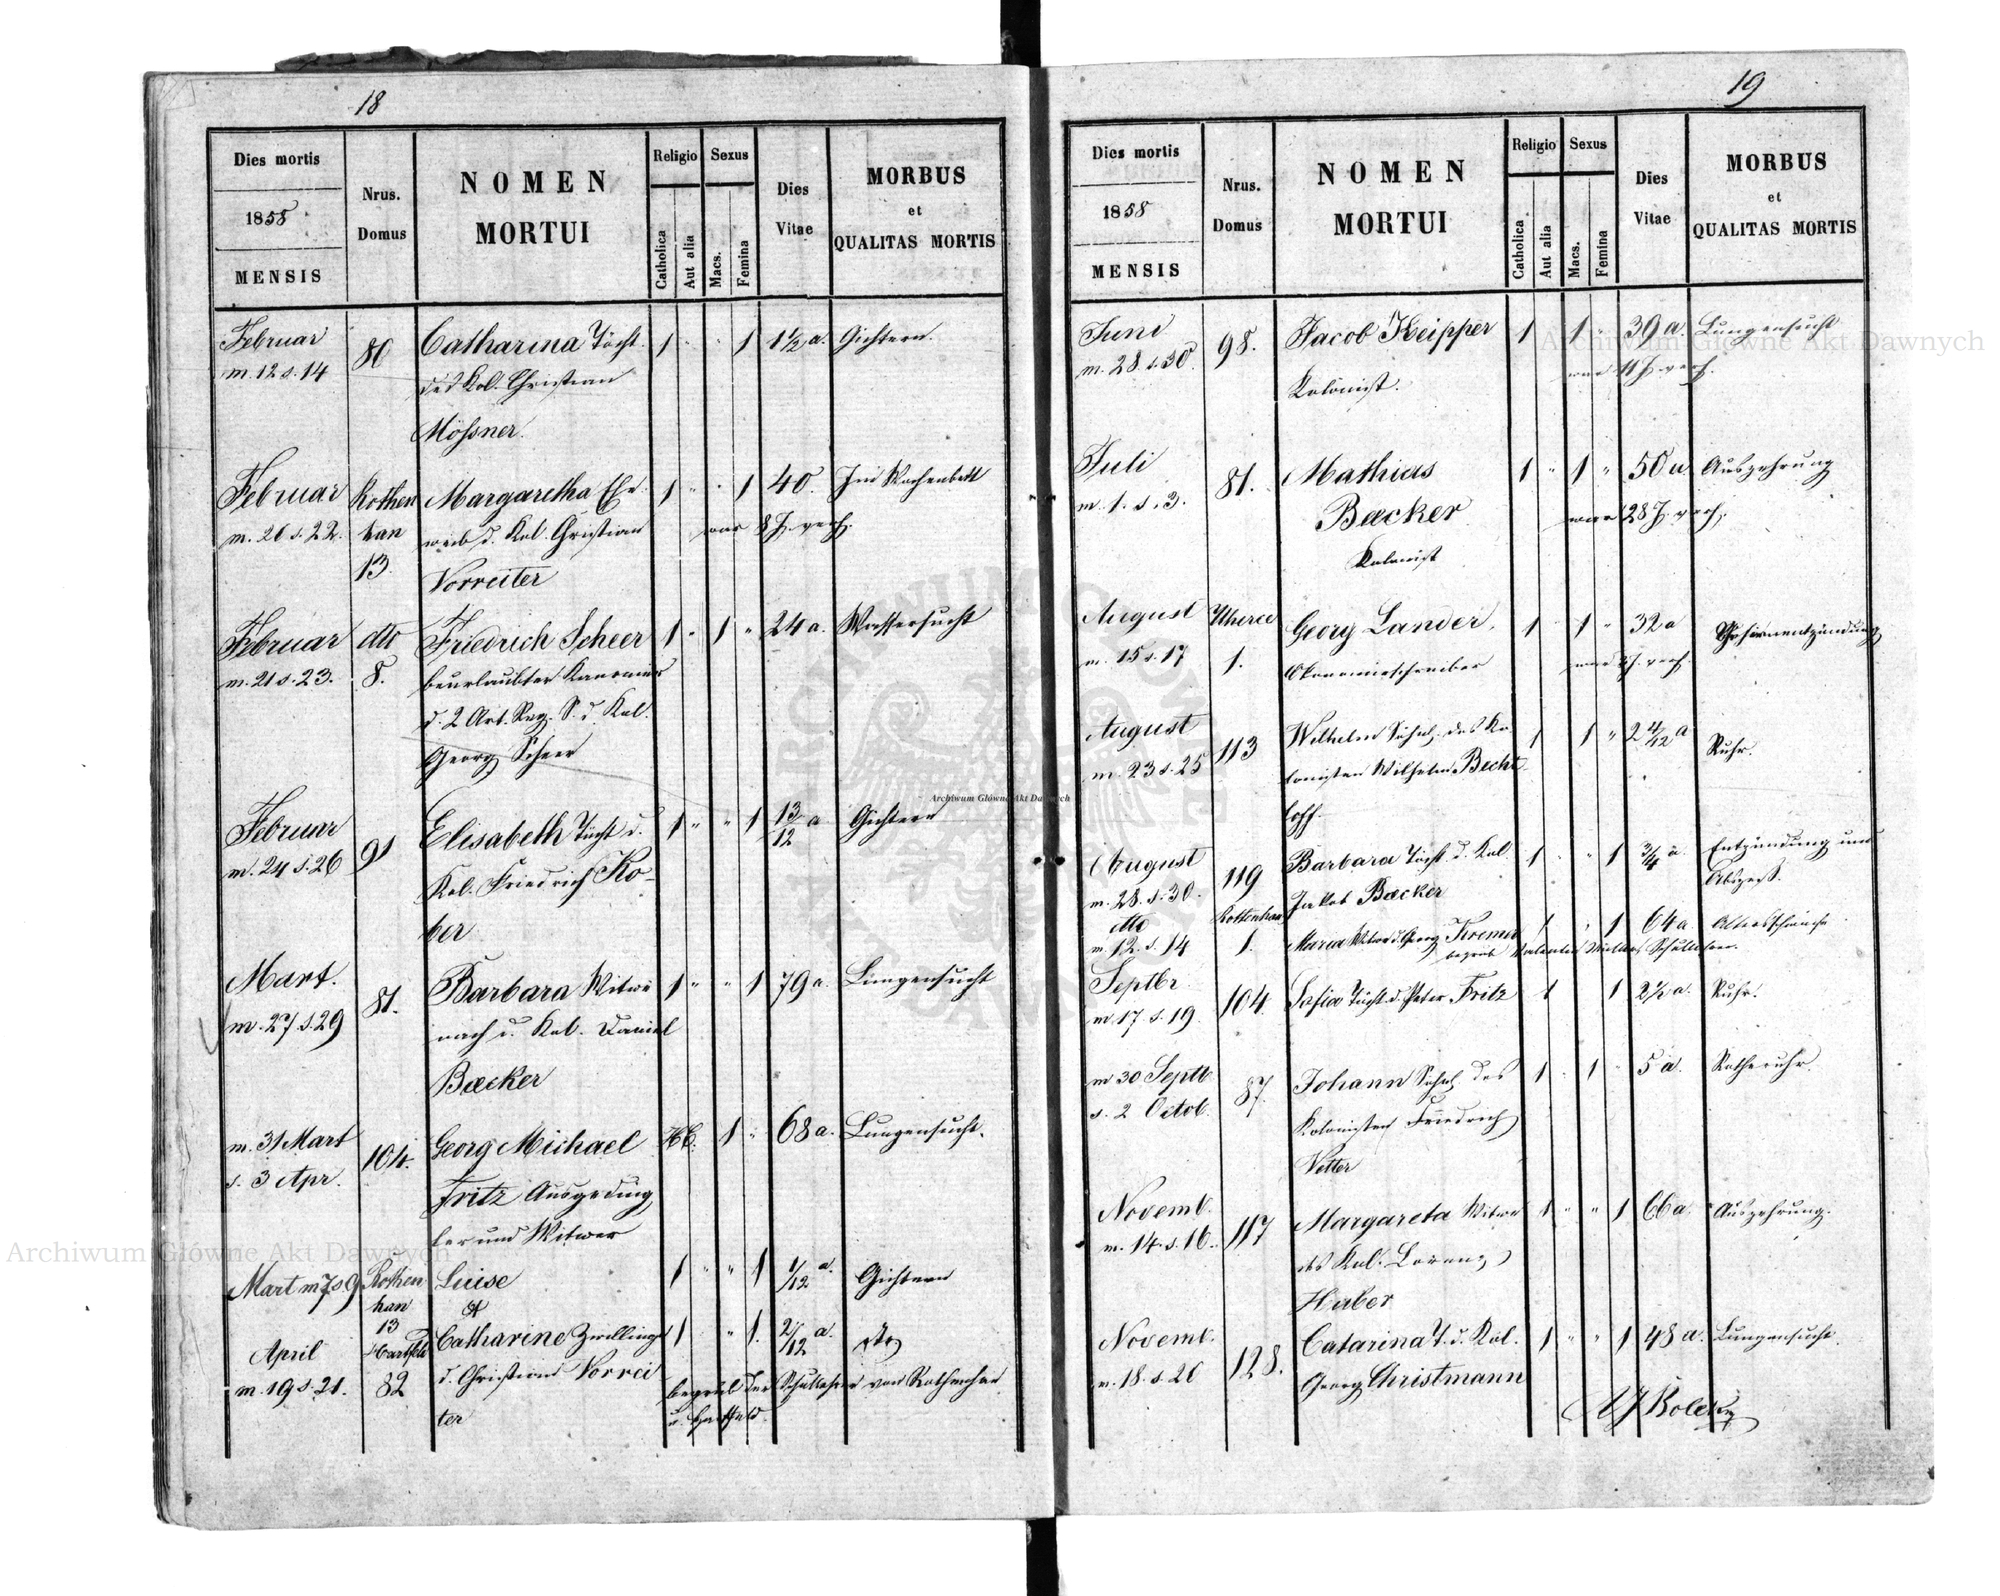 18
Dies mortis
1858
MENSIS
Nrus.
Domus
NOMEN
MORTUI
Religio
Catholica
Aut alia
Sexus
Macs.
Femina
Dies
Vitae
MORBUS
et
QUALITAS MORTIS
Februar
m. 12 s. 14
80
Catharina Tocht.
des Kol. Christian
Mössner.
1 " " 1
1½ a.
Gichtern.
Februar
m. 20 s. 22.
Rothen
han
13.
Margaretha Ehe
weib d. Kol. Christian
Vorreiter
1 " " 1
40.
Im Wochenbett
war 8 J. verh.
Februar
m. 21 s. 23.
dto
8.
Friedrich Scheer
beurlaubter Kanonier
d. 2 Art. Reg. S. d. Kol.
Georg Scheer
1 " 1 "
24 a.
Wassersucht
Februar
m. 24 s. 26
91
Elisabeth Tocht d.
Kol. Friedrich Ko-
ber
1 " " 1
13/12 a
Gichtern
Mart.
m. 27 s. 29
81.
Barbara Witwe
nach d. Kol. Daniel
Bæcker
1 " " 1
79 a.
Lungensucht
m. 31 Mart
s. 3 Apr.
104.
Georg Michael
Fritz Ausgeding
ler und Witwer
1 "
68 a.
Lungensucht.
Mart m 7 s 9
Rothen
han
13
Luise
et
1 " " 1
1/12 a.
Gichtern
April
m. 19 s. 21.
Hartfeld
82
Catharine Zwillinge
d. Christian Vorrei
ter
1 " 1.
2/12 a.
dto
begrub der Schullehrer von Rothenhan
u. Hartfeld.
19
Dies mortis
1858
MENSIS
Nrus.
Domus
NOMEN
MORTUI
Religio
Catholica
Aut alia
Sexus
Macs.
Femina
Dies
Vitae
MORBUS
et
QUALITAS MORTIS
Juni
m. 28 s. 30.
98.
Jacob Keipper
Kolonist.
1 1 "
39 a.
Lungensucht
war 11 J. verh.
Juli
m. 1. s. 3.
81.
Mathias
Bæcker
Kolonist
1 " 1 "
50 a
Auszehrung
war 28 J. verh.
August
m. 15 s. 17
1.
Georg Lander.
Ökonomieschreiber
1 1 "
32 a
Gehirnentzündung
August
m. 23 s. 25
113
Wilhelm Sohn des Ko
lonisten Wilhelm Becht
loff.
1 1 "
Ruhr.
August
m. 28. s. 30.
119
Barbara Tocht d. Kol
Jakob Bæcker
1 " " 1
3/4 a.
Entzündung und
dto
m. 12. s. 14
Rottenhan
1.
Maria Witwe d. Georg Kremer
1 " 1
64 a.
Altersschwäche
begrub Valentin Müller Schullehrer.
Septbr.
m. 17. s. 19.
104.
Sofia Tocht d. Peter Fritz
1 1
2½ a.
Ruhr.
m 30 Septb
s. 2 Octob.
87.
Johann Sohn des
Kolonisten Friedrich
Vetter
1 " 1 "
5 a.
Rotheruhr.
Novemb.
m. 14. s. 16.
117
Margareta Witwe
des Kol. Lorenz
Haber
1 " " 1
66 a
Auszehrung.
Novemb.
m. 18. s. 20
128.
Catarina T. d. Kol.
Georg Christmann
1 " " 1
48 a.
Lungensucht.
Archiwum Główne Akt Dawnych
Archiwum Główne Akt Dawnych
Archiwum Główne Akt Dawnych